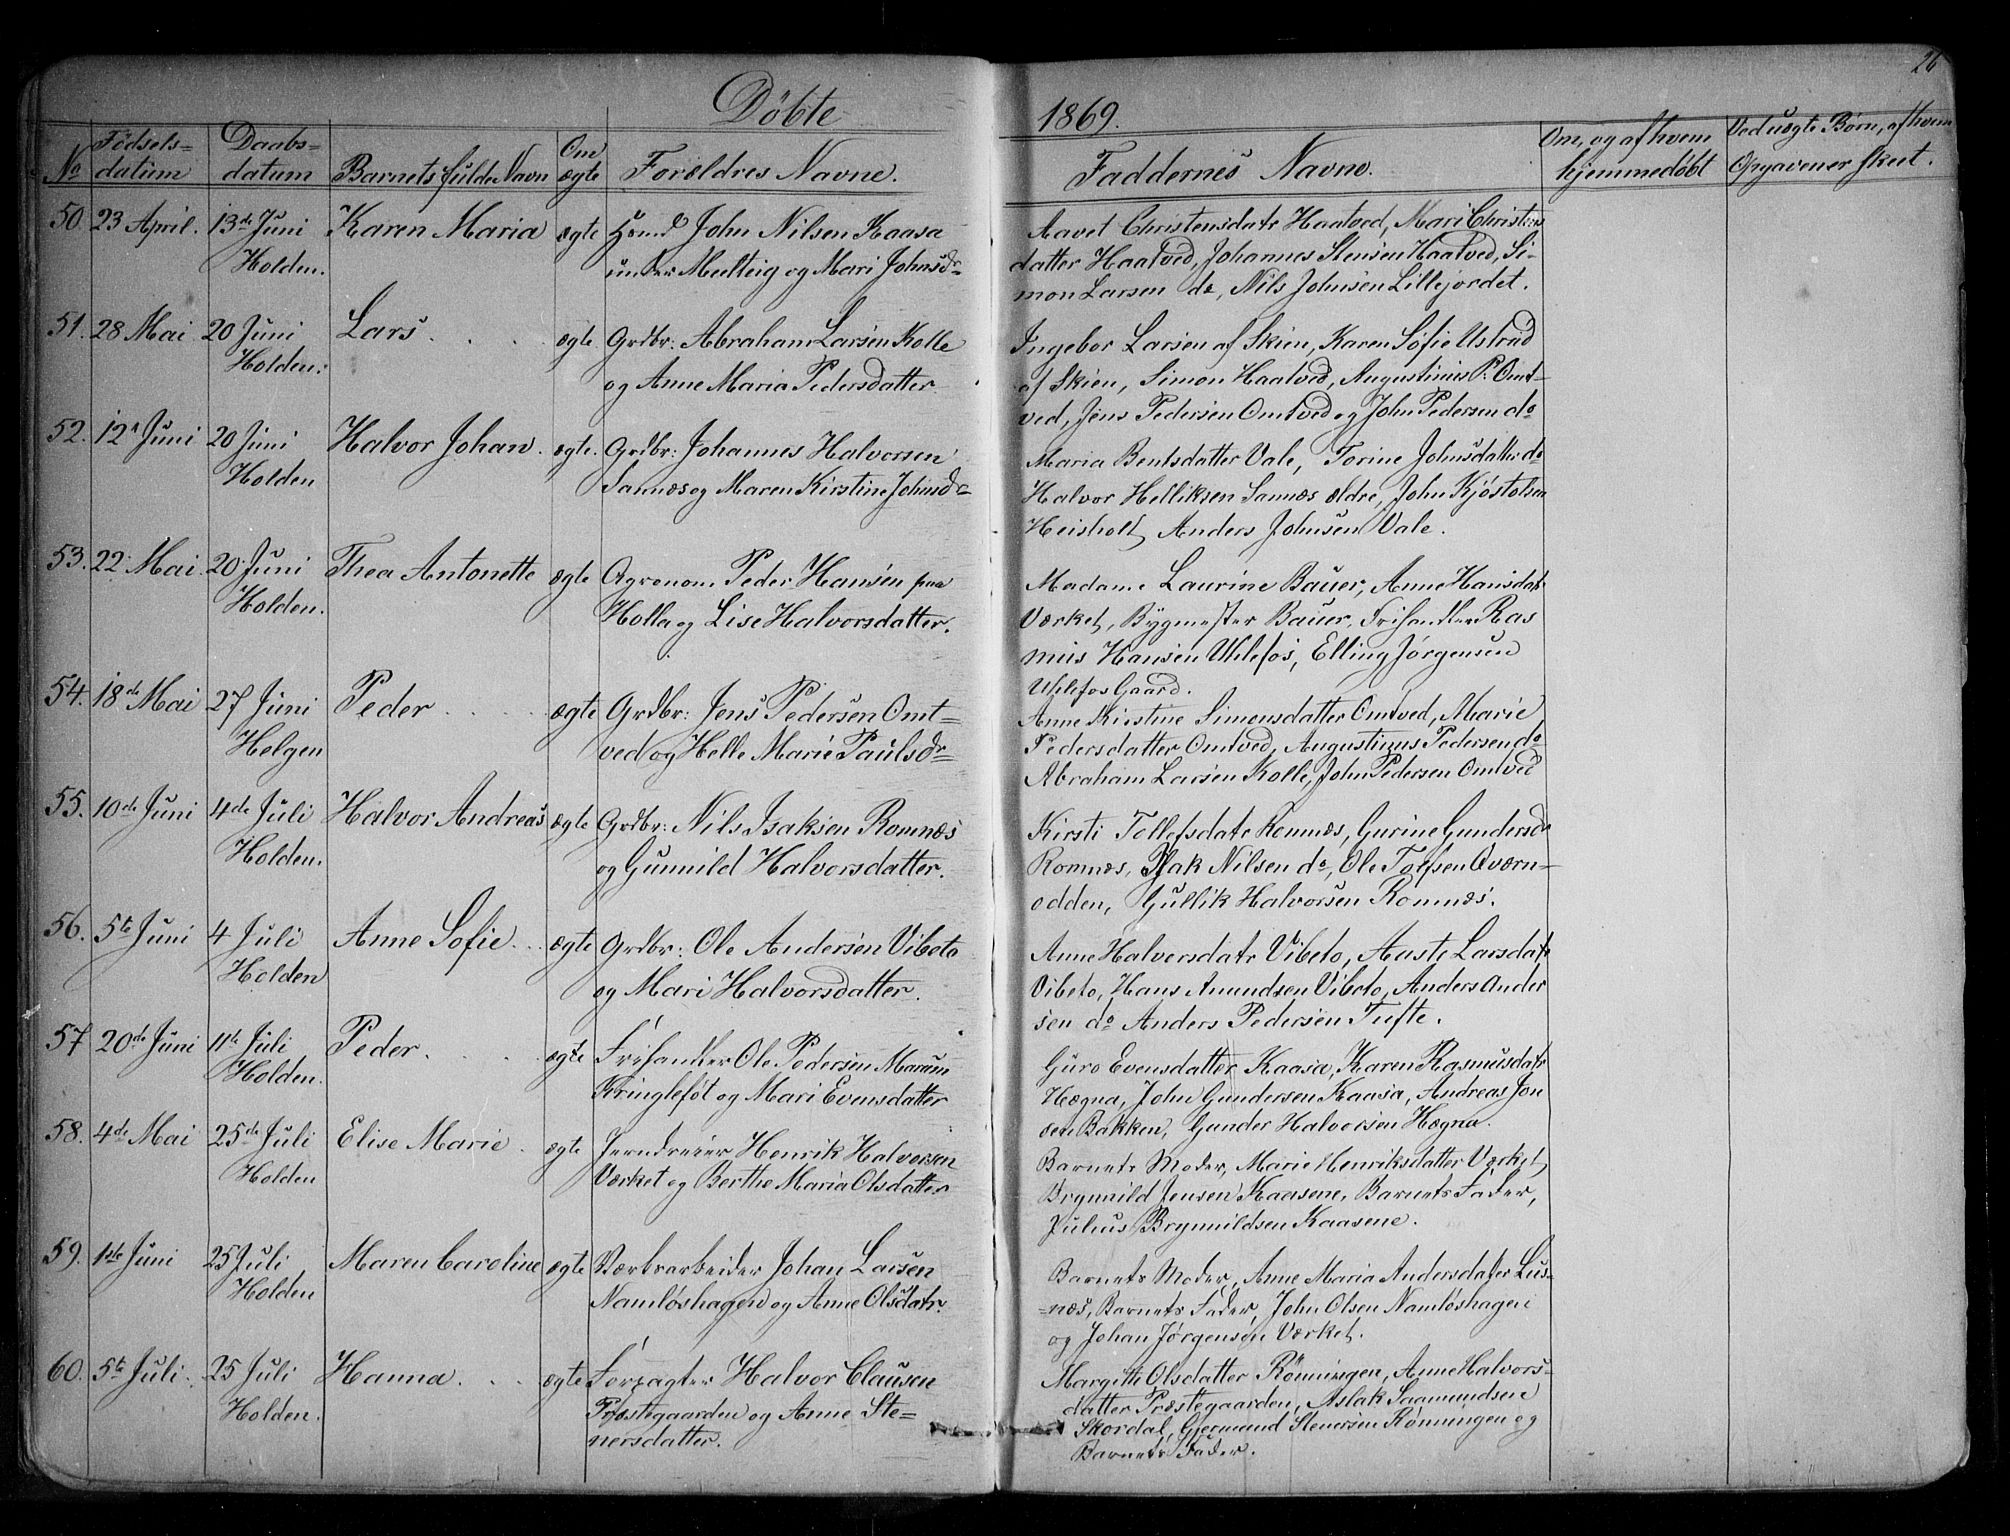 26
Döbte
1869.
No
Födsels=
datum
Daabs=
datum
Barnets fulde Navn
Om
ægte
Forældres Navne.
Faddernes Navne.
Om, og af hvem
hjemmedöbt
Ved uægte Börn, af hvem
Opgavener skeet.
50. 23 April. 13de Juni Karen Maria ægte Hmd John Nilsen Kaasa
Holden. under Melteig og Mari Johnsdr
Aavet Christensdatr Haatved, Mari Christens
datter Haatved, Johannes Stensen Haatved, Si-
mon Larsen do, Nils Johnsen Lillejordet.
51. 28 Mai 20 Juni Lars . . . ægte Grdbr: Abraham Larsen Kolle
Holden. og Anne Maria Pedersdatter
Ingebor Larsen af Skien, Karen Sofie Ustrud
af Skien, Simon Haatved, Augustinus P. Omt-
ved, Jens Pedersen Omtved og John Pedersen do
52. 12 Juni 20 Juni Halvor Johan . ægte. Grdbr: Johannes Halvorsen
Holden Sannæs og Maren Kirstine Johnsdr
Maria Bentsdatter Vale, Torine Johnsdatter do
Halvor Helliksen Sannæs ældre, John Kjöstolsen
Heisholt, Anders Johnsen Vale.
53. 22 Mai 20 Juni Thea Antonette ægte Agronom Peder Hansen paa
Holden. Holla og Lise Halvorsdatter.
Madame Laurine Bauer, Anne Hansdatr
Værket, Bygmester Bauer, Frihandler Ras
mus Hansen Uhlefos, Elling Jørgensen
Uhlefos Gaard.
54. 18de Mai 27 Juni Peder . . . ægte Grdbr: Jens Pedersen Omt=
Helgen ved og Helle Marie Paulsdr
Anne Kirstine Simonsdatter Omtved, Marie
Pedersdatter Omtved, Augustinus Pedersen do
Abraham Larsen Kolle, John Pedersen Omtved
55. 10de Juni 4de Juli Halvor Andreas ægte Grdbr: Nils Isaksen Romnæs
Holden. og Gunnild Halvorsdatter.
Kirsti Tollefsdatr Romnæs, Gurine Gundersdr
Romnæs, Isak Nilsen do, Ole Tolfsen Qværn-
odden, Gullik Halvorsen Romnæs.
56. 5te Juni 4 Juli Anne Sofie . . ægte Grdbr: Ole Andersen Vibeto
Holden og Mari Halvorsdatter.
Anne Halvorsdatr Vibeto, Aaste Larsdatr
Vibeto, Hans Amundsen Vibeto, Anders Ander
sen do Anders Pedersen Tufte.
57 20de Juni 11te Juli Peder . . . ægte Frihandler Ole Pedersen Marum
Holden. Kringlefot og Mari Evensdatter
Guro Evensdatter Kaasa, Karen Rasmusdatr
Hægna, John Gundersen Kaasa, Andreas Jon
sen Bakken, Gunder Halvorsen Hægna.
58. 4de Mai 25de Juli Elise Marie . ægte Jerndreier Henrik Halvorsen
Holden Værket og Berthe Maria Olsdatter
Barnets Moder, Marie Henriksdatter Værket
Brynnild Jensen Kaasene, Barnets Fader,
Julius Brynnildsen Kaasene.
59. 1ste Juni 25 Juli Maren Caroline ægte Værksarbeider Johan Larsen
Holden Namlöshagen og Anne Olsdatr.
Barnets Moder, Anne Maria Andersdatter Lus=
=næs, Barnets Fader, John Olsen Namløshagen
og Johan Jørgensen Værket.
60. 5te Juli. 25 Juli Hanna . . . ægte Forpagter Halvor Clausen
Holden. Præstegaarden og Anne Ste=
nersdatter.
Margith Olsdatter Rönningen, Anne Halvors=
datter Præstegaarden, Aslak Saamundsen
Skordal, Gjermund Stenersen Rönningen og
Barnets Fader.